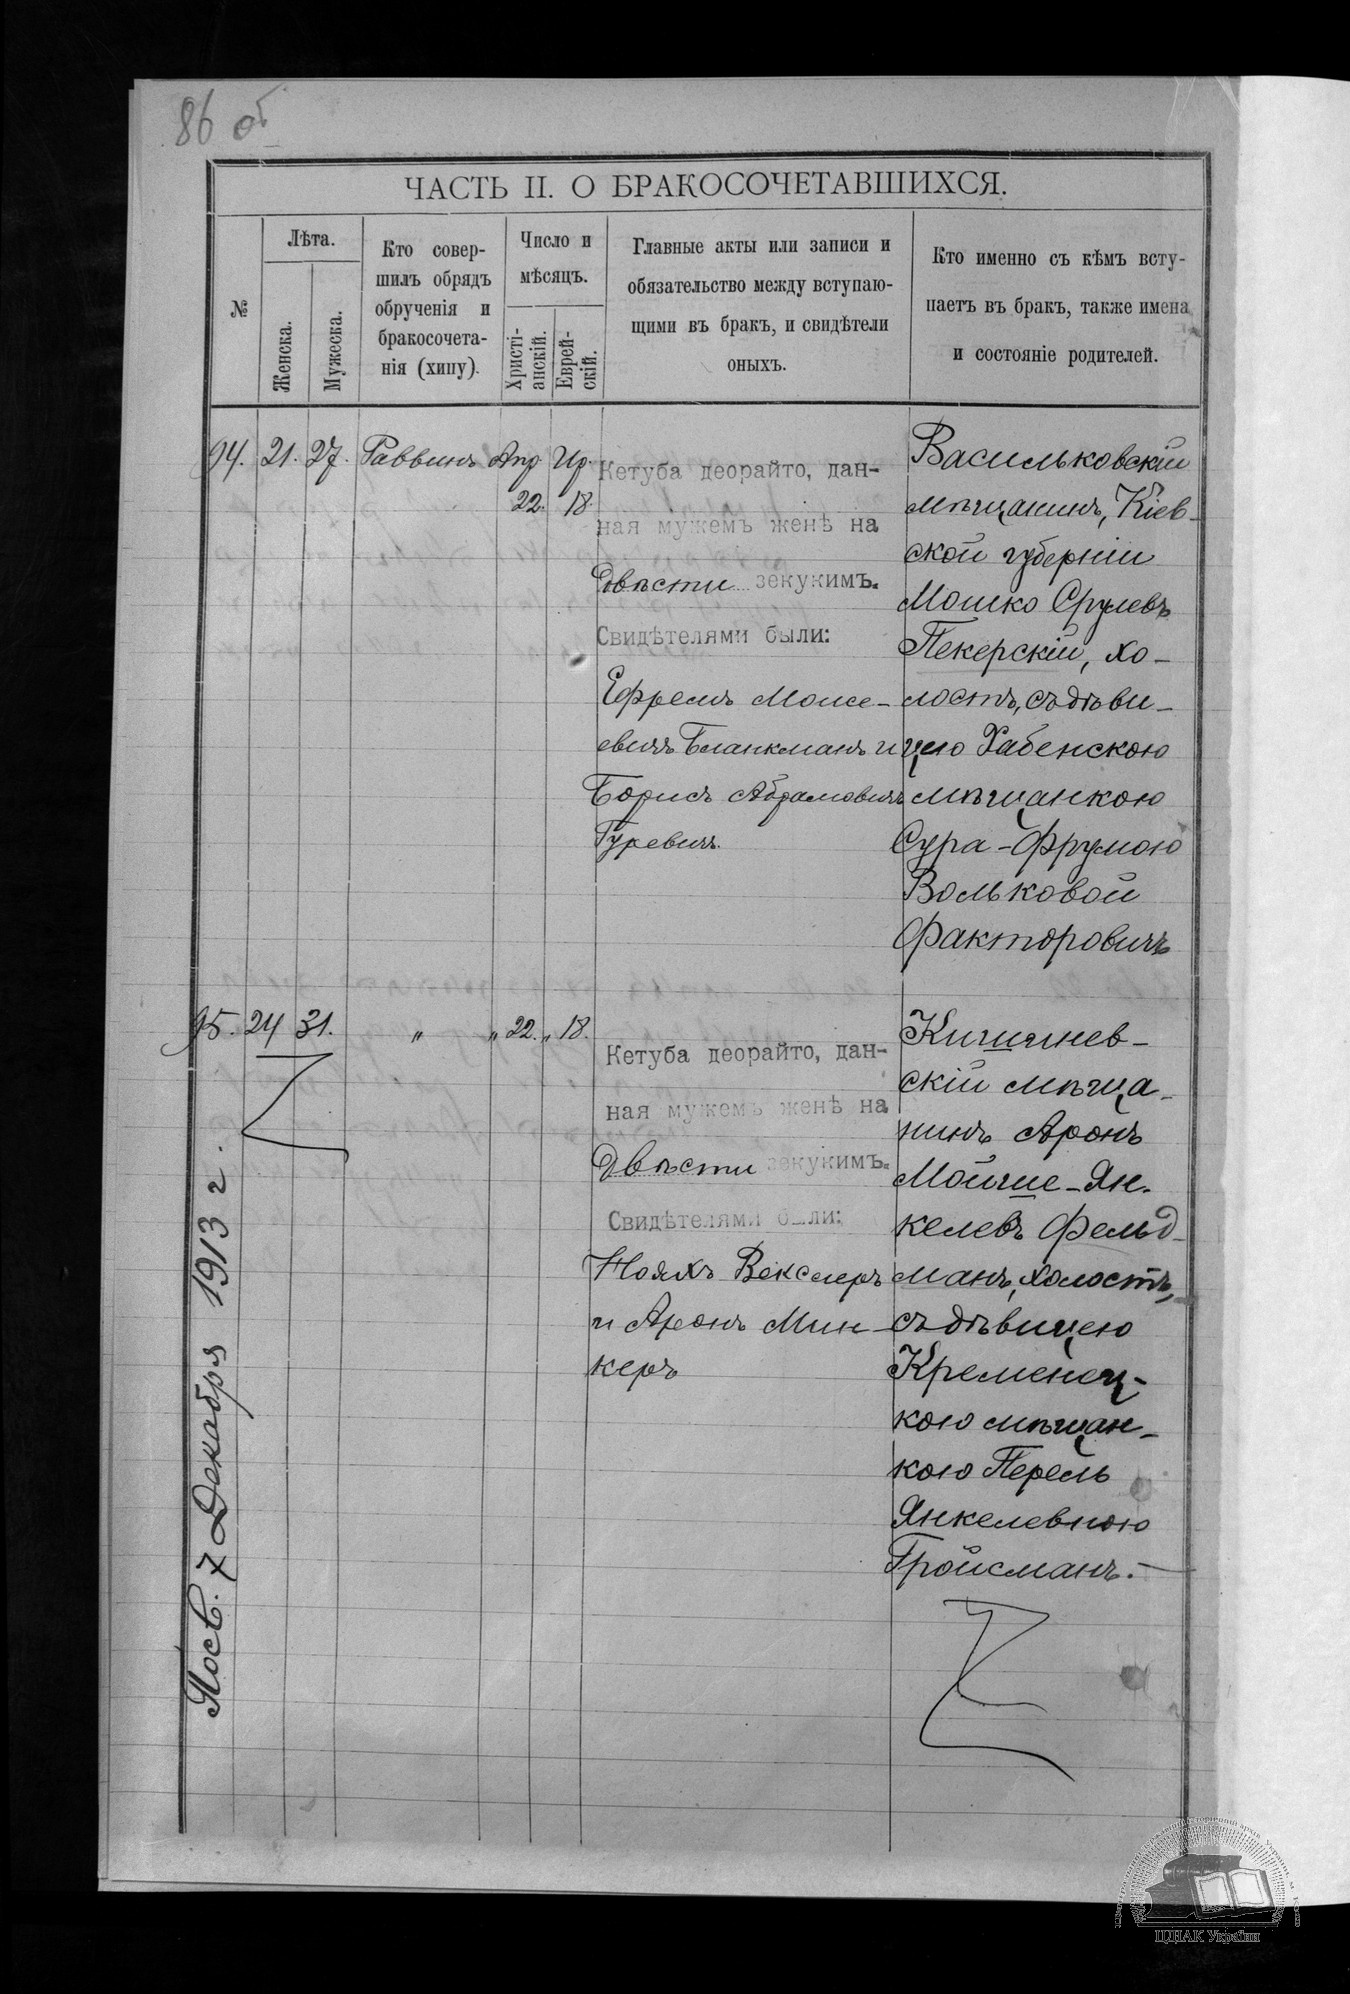 86 об
ЧАСТЬ II. О БРАКОСОЧЕТАВШИХСЯ.
№
Лѣта.
Женска.
Мужеска.
Кто совер-
шилъ обрядъ
обрученія и
бракосочета-
нія (хипу).
Число и
мѣсяцъ.
Христі-
анскій.
Еврей-
скій.
Главные акты или записи и
обязательство между вступаю-
щими въ бракъ, и свидѣтели
оныхъ.
Кто именно съ кѣмъ всту-
паетъ въ бракъ, также имена
и состояніе родителей.
94. 21. 27. Раввинъ Апр. Ир.
22. 18.
Кетуба деорайто, дан-
ная мужемъ женѣ на
Двѣсти зекукимъ.
Свидѣтелями были:
Ефремъ Моисе-
евичъ Бланкманъ и
Борисъ Абрамовичъ
Гуревичъ.
Васильковскій
мѣщанинъ, Кіев-
ской губерніи
Мошко Срулевъ
Пекерскій, хо-
лостъ, съ дѣви-
цею Хабенскою
мѣщанкою
Сура-Фрумою
Вольковой
Факторовичъ
95. 24 31. " " 22. " 18.
Кетуба деорайто, дан-
ная мужемъ женѣ на
Двѣсти зекукимъ.
Свидѣтелями были:
Нояхъ Векслеръ
и Аронъ Мин-
керъ
Кишинев-
скій мѣща-
нинъ Аронъ
Мойше-Ян-
келевъ Фельд-
манъ, холостъ,
съ дѣвицею
Кременец-
кою мѣщан-
кою Перель
Янкелевною
Гройсманъ.
7 Декабря 1913 г.
ЦДІАК України